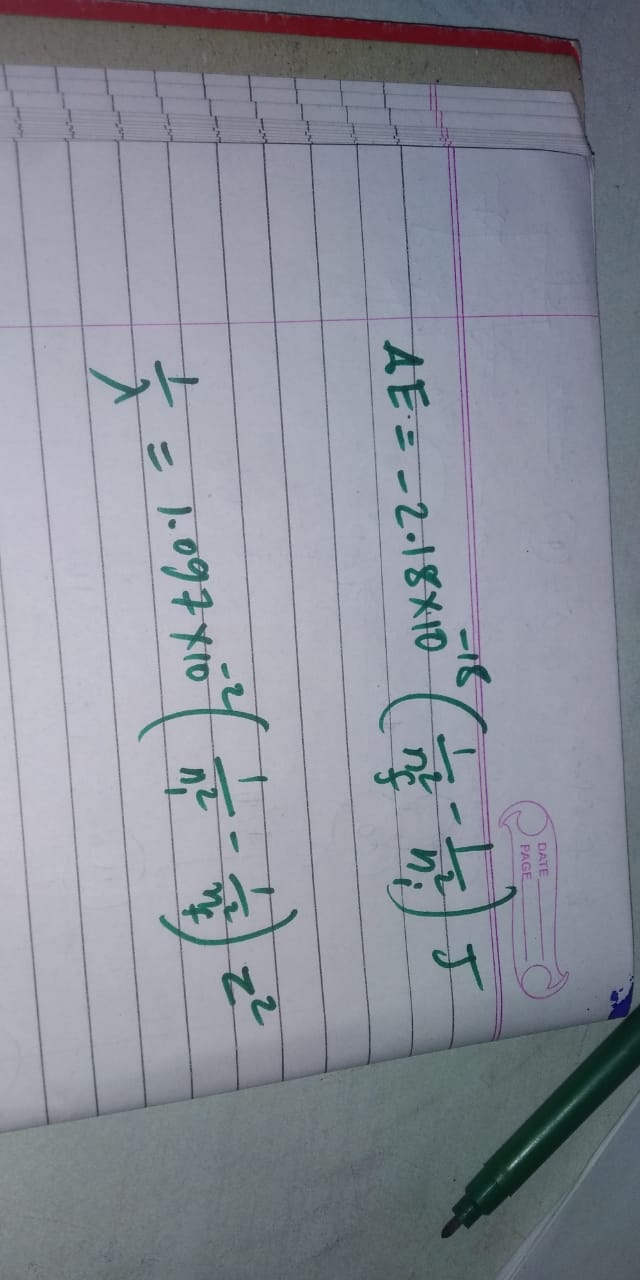 DATE
PAGE
ΔE = -2.18×10^-18 (1/n_f^2 - 1/n_i^2) J
1/λ = 1.097×10^-2 (1/n_i^2 - 1/n_f^2) Z^2